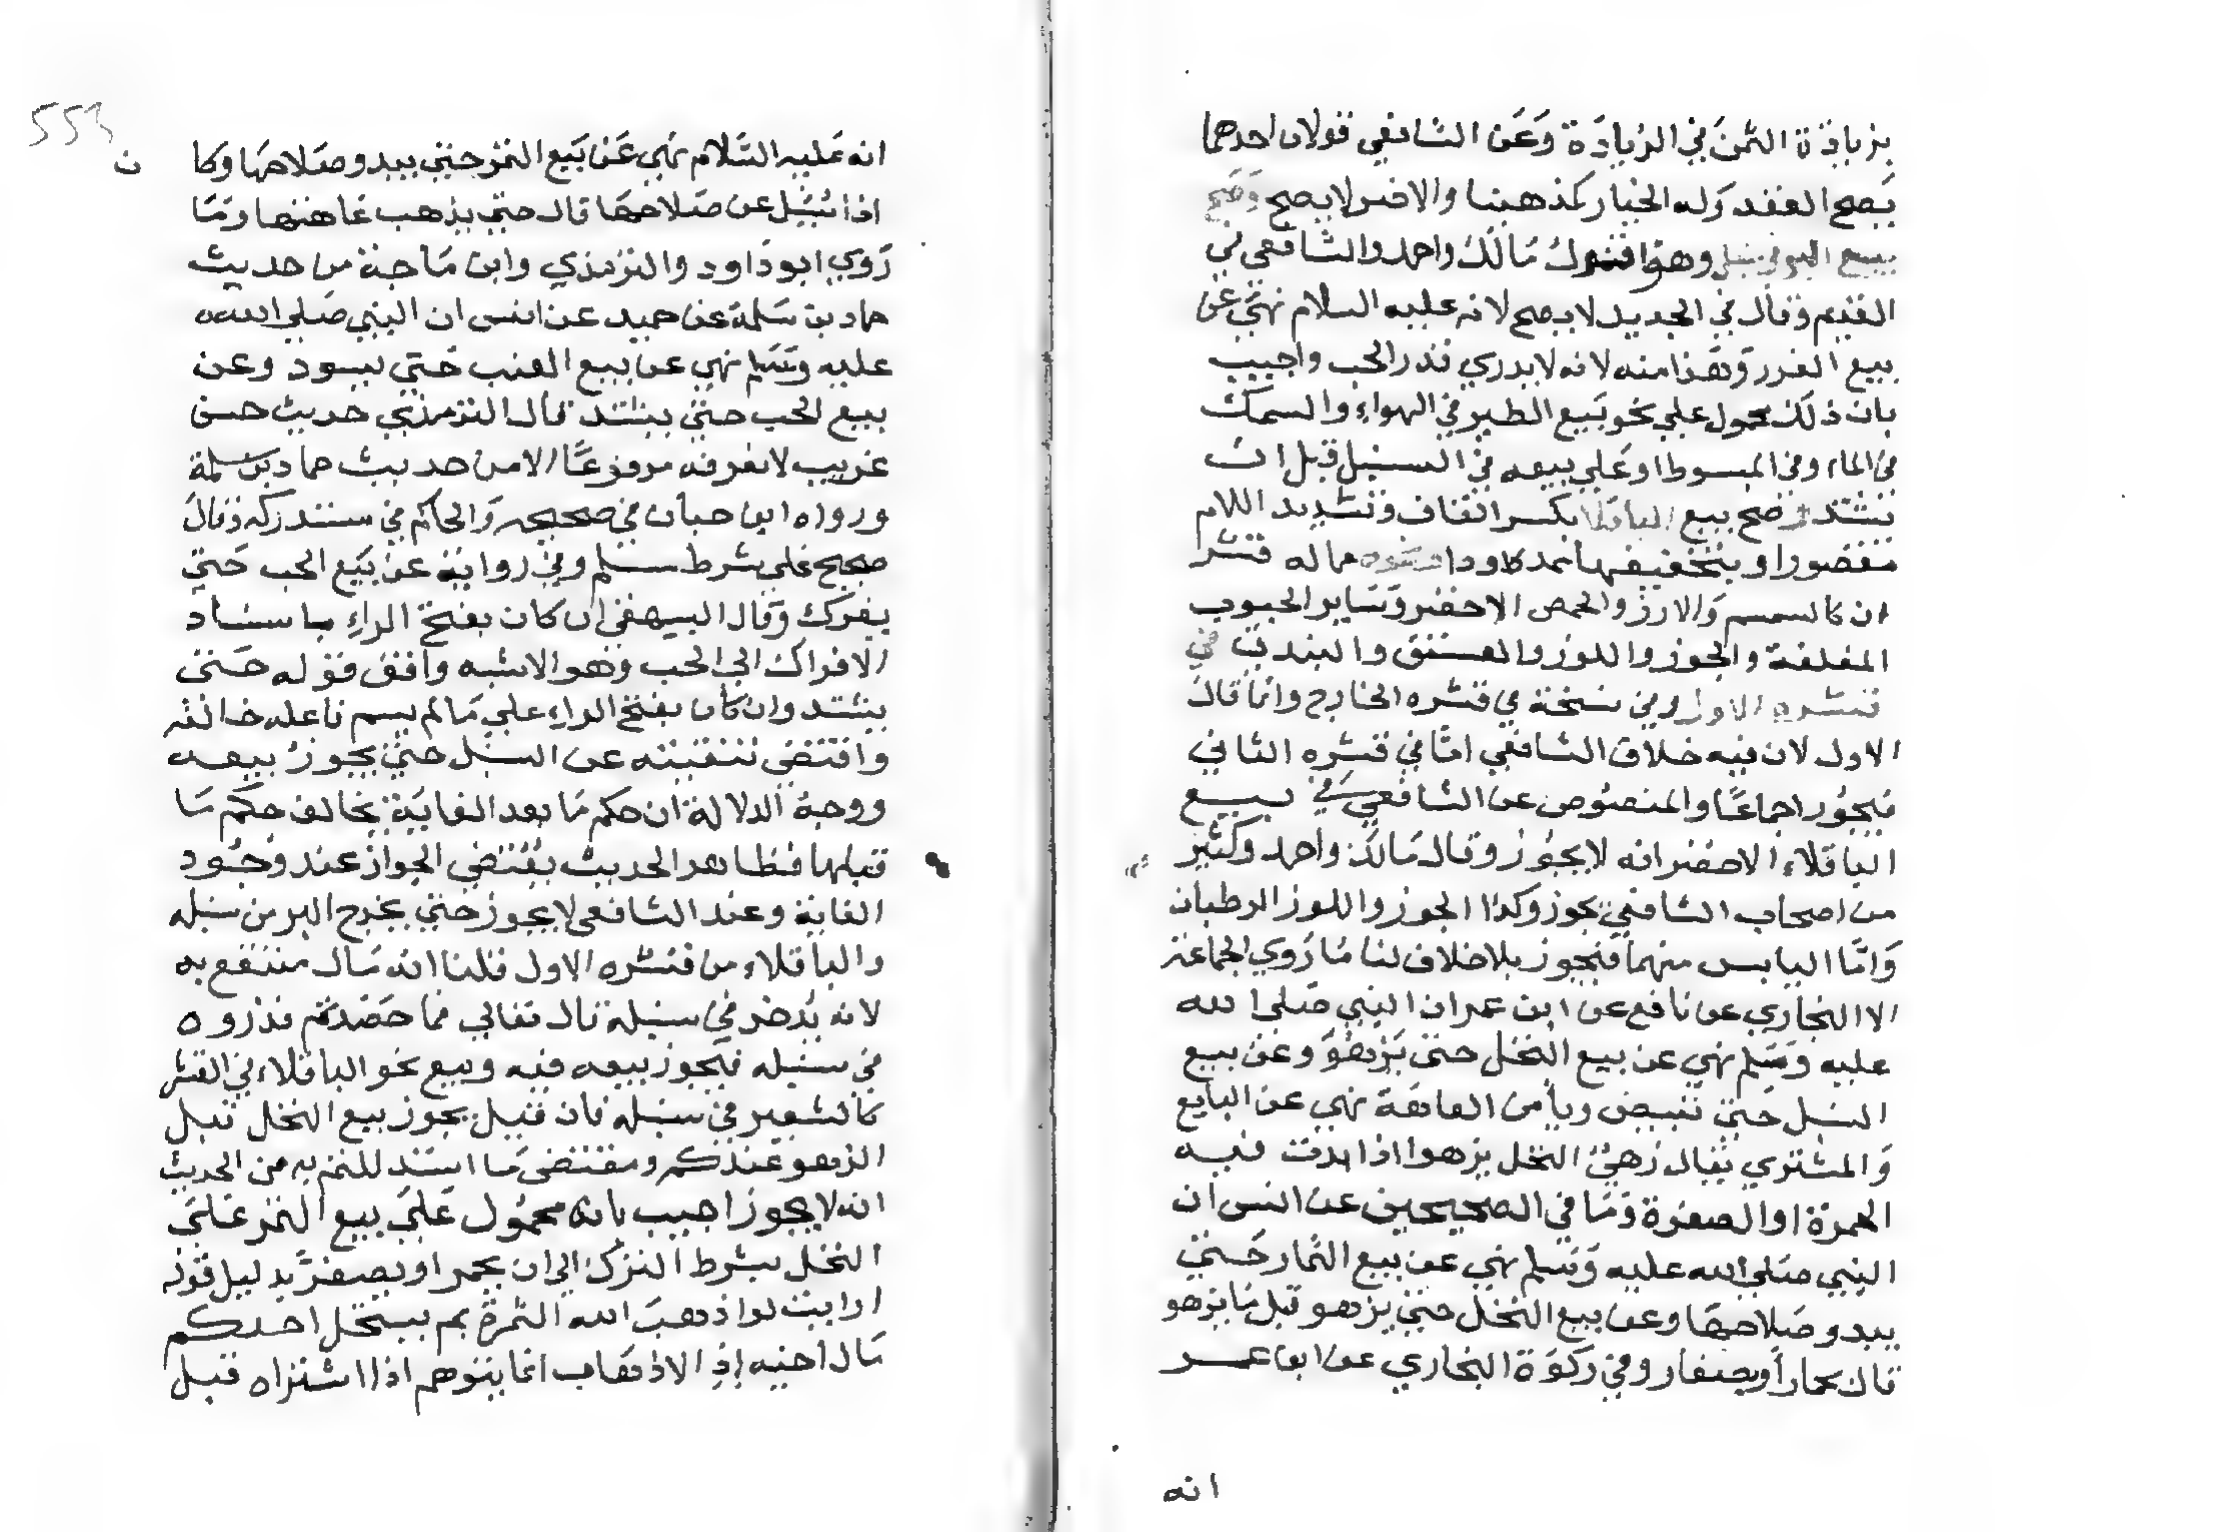 بزيادة الثمن في الزيادة وعن الشافعي قولان احدهما
يصح العقد وله الخيار كمذهبنا والاخر لا يصح وصح
بيع البر في سنبله وهو قول مالك واحمد والشافعي في
القديم وقال في الجديد لا يصح لانه عليه السلام نهي عن
بيع الغرر وهذا منه لانه لا يدري قدر الحب واجيب
بان ذلك محمول علي نحو بيع الطير في الهواء والسمك
في الماء وفي المبسوط او علي بيعه في السنبل قبل ان
تشتد وصح بيع الباقلا بكسر القاف وتشديد اللام
مقصورا و بتخفيفها يمد كاودا ونحوه مما له قشر
ان كالسمسم والارز والحمص الاخضر وساير الحبوب
المغلفة والجوز واللوز والفستق والبندق في
قشره الاول وفي نسخة في قشره الخارج وانما قال
الاول لان فيه خلاف الشافعي اما في قشره الثاني
فيجوز اجماعا والمنصوص عن الشافعي في بيع
الباقلاء الاخضر انه لا يجوز وقال مالك واحمد وكثير
من اصحاب الشافعي يجوز وكذا الجوز واللوز الرطبان
واما اليابس منهما فيجوز بلا خلاف لنا ما روي الجماعة
الا البخاري عن نافع عن ابن عمر ان النبي صلي الله
عليه وسلم نهي عن بيع النخل حتي يزهو وعن بيع
السنبل حتي تبيض ويأمن العاهة نهي عن البايع
والمشتري يقال زهي النخل يزهوا اذا بدت فيه
الحمرة او الصفرة وما في الصحيحين عن انس ان
النبي صلي الله عليه وسلم نهي عن بيع الثمار حتي
يبدو صلاحها وعن بيع النخل حتي يزهو قيل ما يزهو
قال يحمار أويصفار وفي زكوة البخاري عن ابن عمر
انه
ن
انه عليه السلام نهي عن بيع الثمر حتي يبدو صلاحها وكا
اذا سئل عن صلاحها قال حتي يذهب عاهتها وما
روي ابو داود والترمذي وابن ماجة من حديث
حماد بن سلمة عن حميد عن انس ان النبي صلي الله
عليه وسلم نهي عن بيع العنب حتي يسود وعن
بيع الحب حتي يشتد قال الترمذي حديث حسن
غريب لا نعرفه مرفوعا الا من حديث حماد بن سلمة
ورواه ابن حبان في صحيحه والحاكم في مستدركه وقال
صحيح علي شرط مسلم وفي رواية عن بيع الحب حتي
يفرك وقال البيهقي ان كان بفتح الراء باسناد
الافراك الي الحب وهو الاشبه وافق قوله حتي
يشتد وان كان بفتح الراء علي ما لم يسم فاعله خالفه
واقتضي تنقيته عن السنبل حتي يجوز بيعه
ووجه الدلالة ان حكم ما بعد الغاية يخالف حكم ما
قبلها فظاهر الحديث يقتضي الجواز عند وجود
الغاية وعند الشافعي لا يجوز حتي يخرج البر من سنبله
والباقلاء من قشره الاول قلنا انه مال منتفع به
لانه يدخر في سنبله قال تعالي فما حصدتم فذروه
في سنبله فيجوز بيعه فيه وبيع نحو الباقلاء في القشر
كالشعير في سنبله فان قيل يجوز بيع النخل قبل
الزهو عندكم ومقتضي ما استدللتم به من الحديث
انه لا يجوز اجيب بانه محمول علي بيع الثمر علي
النخل بشرط الترك الي ان يحمر او يصفر بدليل قوله
ارايت لو اذهب الله الثمرة بم يستحل احدكم
مال اخيه إذ الاذهاب انما يتوهم اذا اشتراه قبل